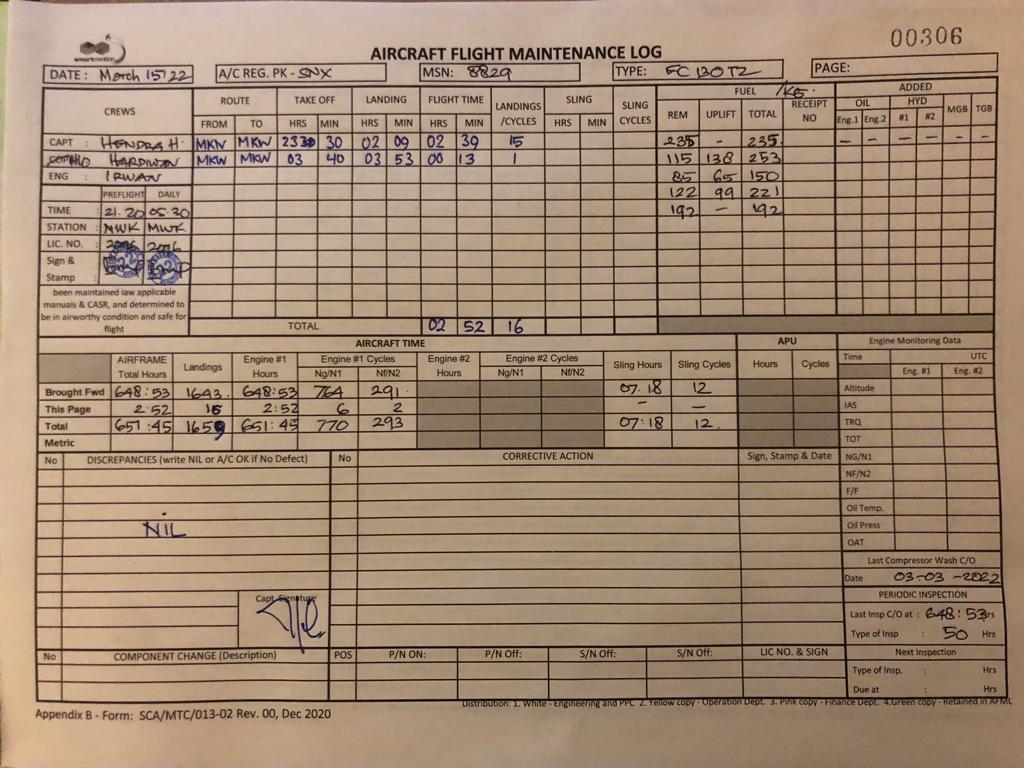 00306
smartaviation
AIRCRAFT FLIGHT MAINTENANCE LOG
DATE : March 15' 22 A/C REG. PK - SNX MSN: 8829 TYPE: EC 130 T2 PAGE:
CREWS ROUTE TAKE OFF LANDING FLIGHT TIME LANDINGS /CYCLES SLING SLING CYCLES FUEL /KG. ADDED
FROM TO HRS MIN HRS MIN HRS MIN HRS MIN REM UPLIFT TOTAL RECEIPT NO OIL HYD MGB TGB
Eng.1 Eng.2 #1 #2
CAPT : HENDRA H. MKW MKW 23 30 02 09 02 39 15 235 - 235. - - - - - -
HARDIWAN MKW MKW 03 40 03 53 00 13 1 115 138 253
ENG : IRWAN 85 65 150
PREFLIGHT DAILY 122 99 221
TIME : 21.20 05.30 192 - 192
STATION : MWK MWK
LIC. NO. : 2096 2096
Sign &
Stamp :
been maintained iaw applicable
manuals & CASR, and determined to
be in airworthy condition and safe for
flight
TOTAL 02 52 16
AIRCRAFT TIME APU Engine Monitoring Data
AIRFRAME Total Hours Landings Engine #1 Hours Engine #1 Cycles Engine #2 Hours Engine #2 Cycles Sling Hours Sling Cycles Hours Cycles Time : UTC
Ng/N1 Nf/N2 Ng/N1 Nf/N2 Eng. #1 Eng. #2
Brought Fwd 648:53 1643. 648:53 764 291. 07.18 12 Altitude
This Page 2:52 16 2:52 6 2 - - IAS
Total 651:45 1659 651:45 770 293 07:18 12. TRQ
Metric TOT
No DISCREPANCIES (write NIL or A/C OK if No Defect) No CORRECTIVE ACTION Sign, Stamp & Date NG/N1
NF/N2
F/F
Oil Temp.
NIL
Oil Press
OAT
Last Compressor Wash C/O
Date 03-03-2022
PERIODIC INSPECTION
Capt. Signature
Last Insp C/O at : 648:53 Hrs
Type of Insp : 50 Hrs
No COMPONENT CHANGE (Description) POS P/N ON: P/N Off: S/N Off: S/N Off: LIC NO. & SIGN Next Inspection
Type of Insp. : Hrs
Due at : Hrs
Appendix B - Form: SCA/MTC/013-02 Rev. 00, Dec 2020
Distribution: 1. White - Engineering and PPC 2. Yellow copy - Operation Dept. 3. Pink copy - Finance Dept. 4.Green copy - Retained in AFML